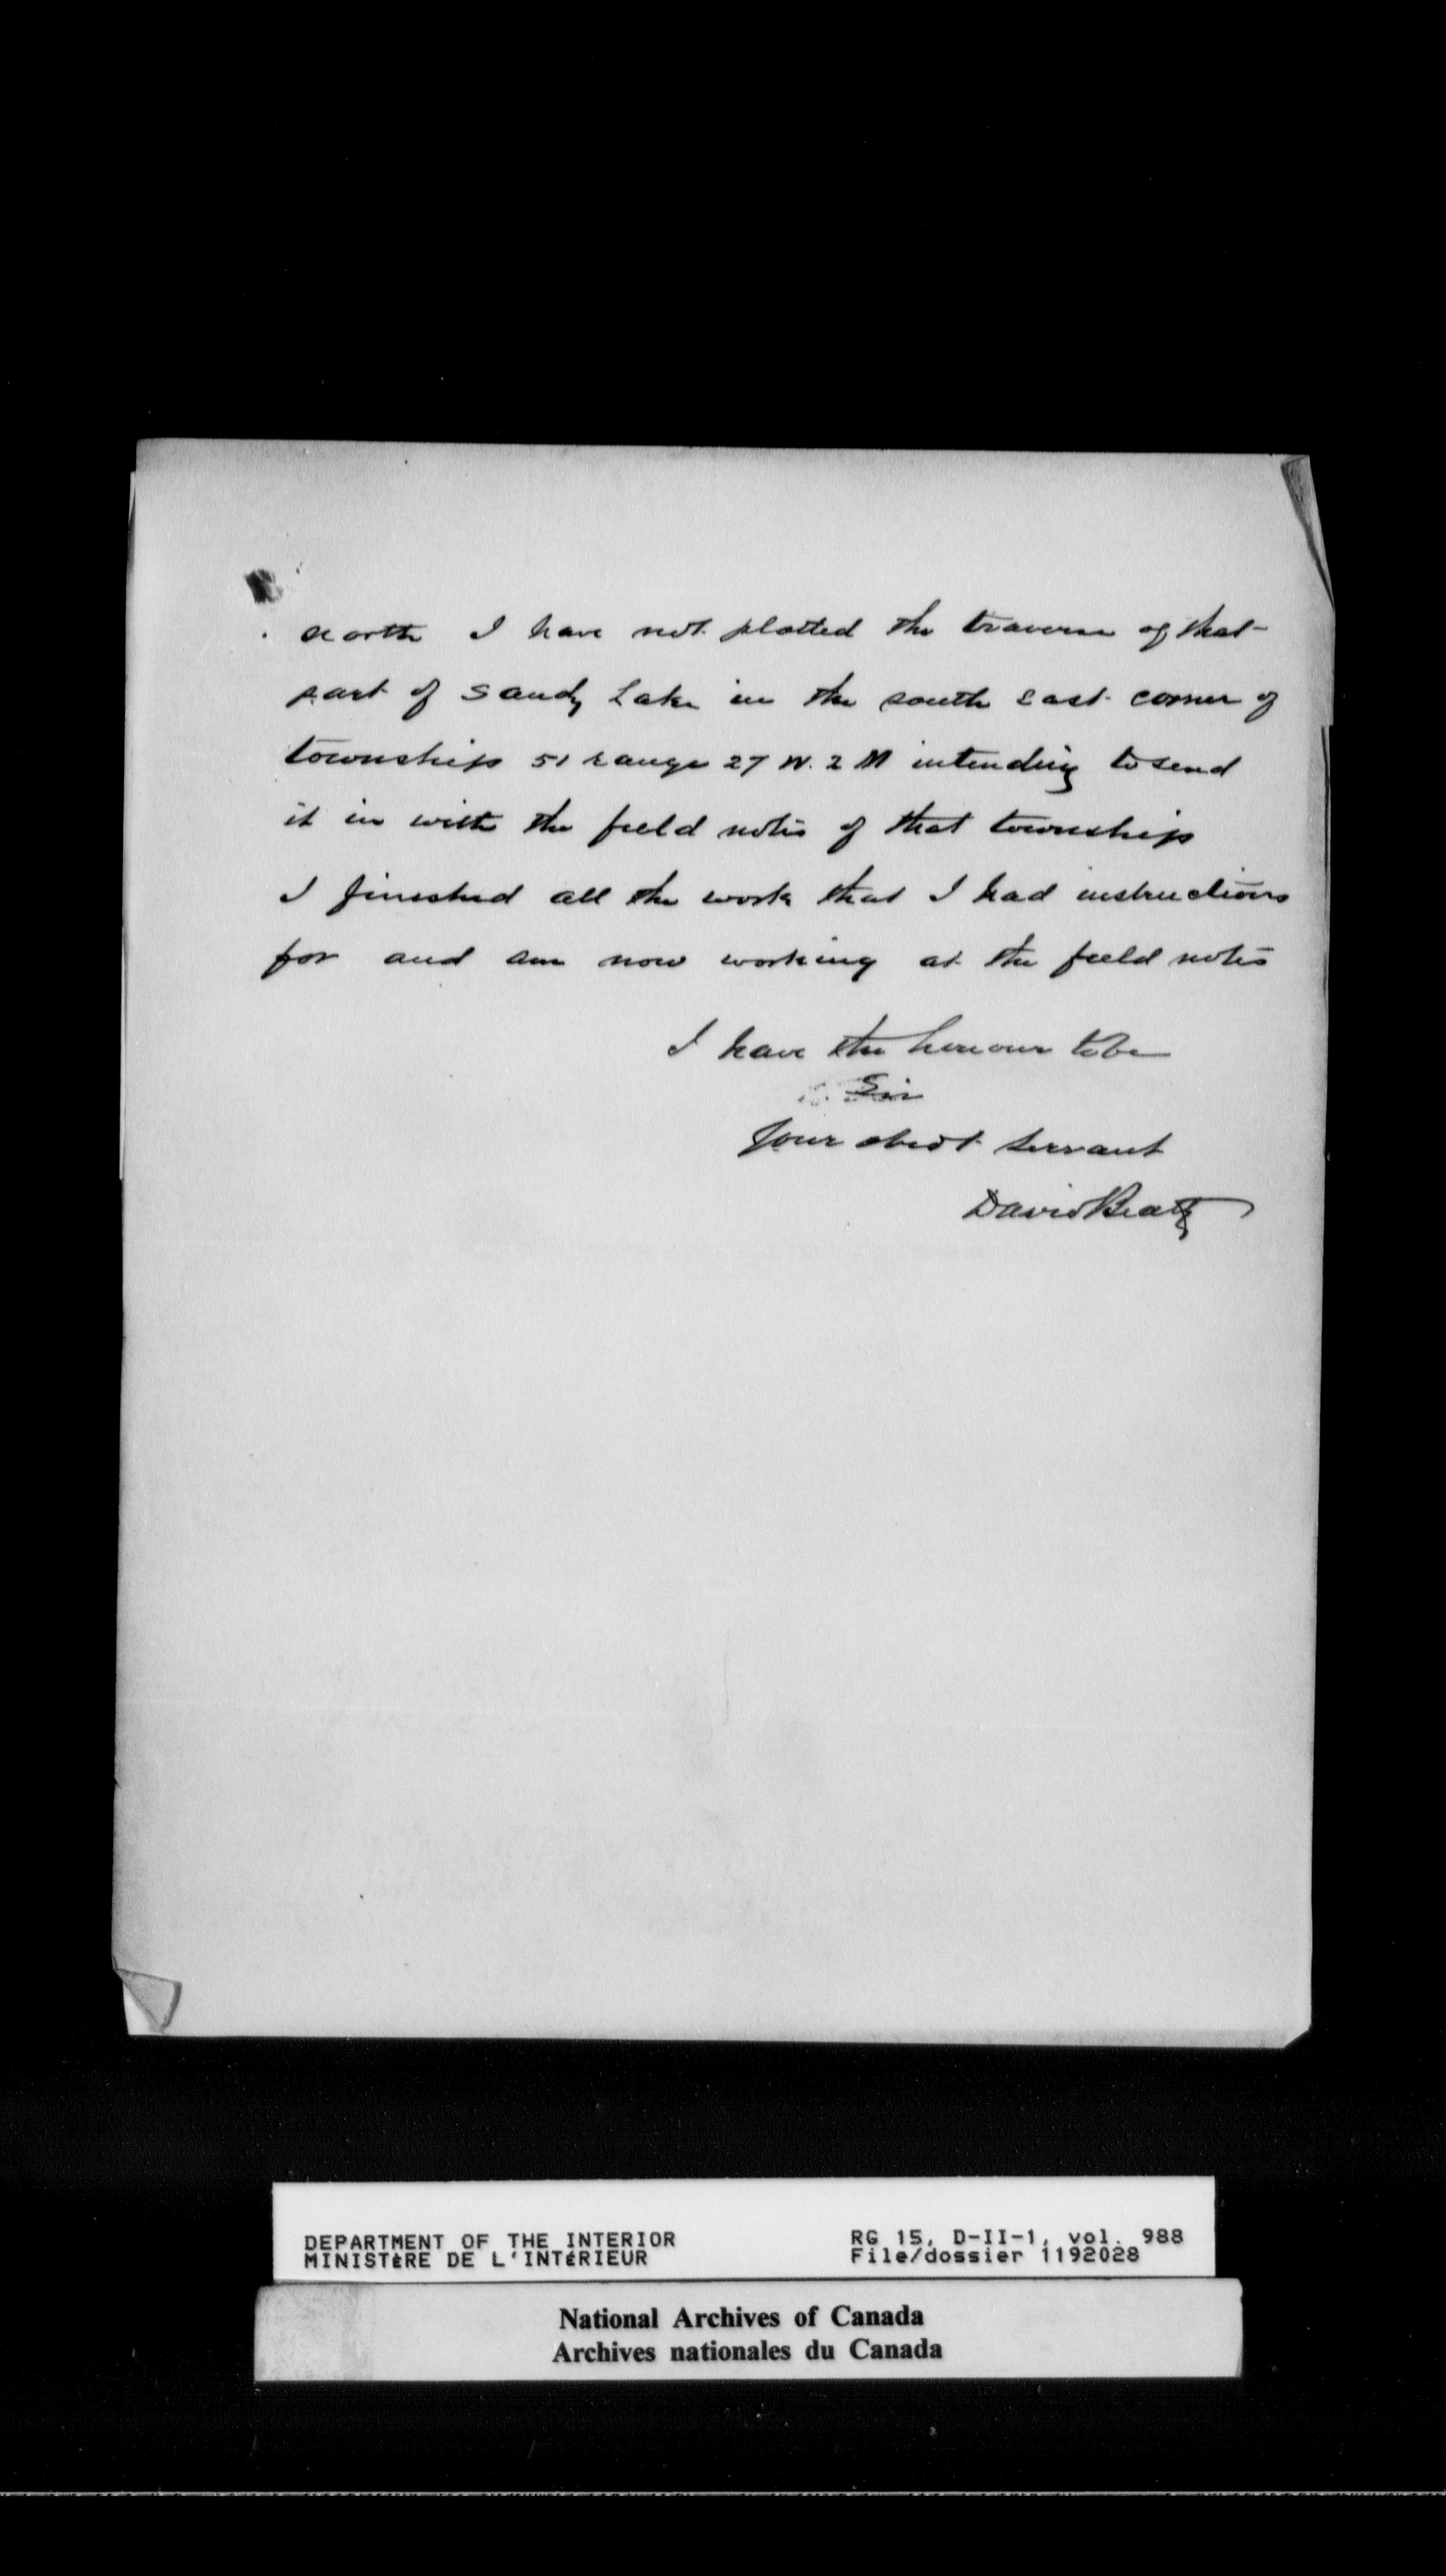 north I have not plotted the traverse of that
part of Sandy Lake in the south east corner of
township 51 range 27 W. 2 M intending to send
it in with the field notes of that township
I finished all the work that I had instructions
for and am now working at the field notes
I have the honour to be
Sir
Your obedt servant
David Beatty
DEPARTMENT OF THE INTERIOR
MINISTÈRE DE L'INTÉRIEUR
RG 15, D-II-1, vol. 988
File/dossier 1192028
National Archives of Canada
Archives nationales du Canada